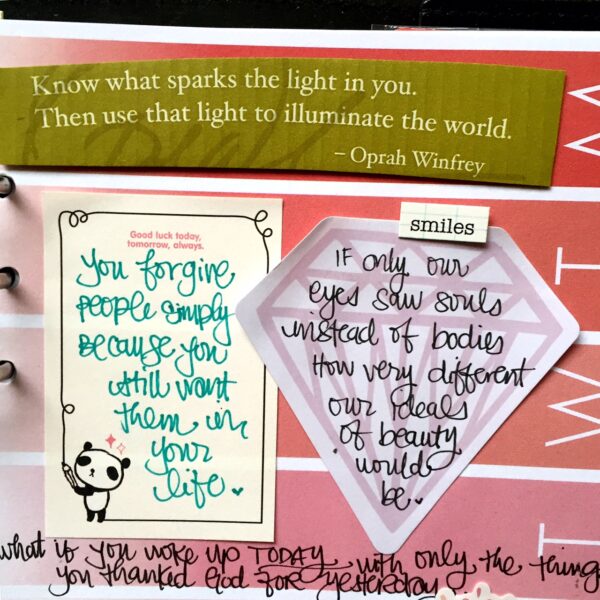 Know what sparks the light in you.
Then use that light to illuminate the world.
– Oprah Winfrey
Good luck today,
tomorrow, always.
You forgive
people simply
because you
still want
them in
your
life.
smiles
IF only our
eyes saw souls
instead of bodies
How very different
our ideals
of beauty
would
be.
what if you woke up TODAY with only the thing
you thanked God for yesterday